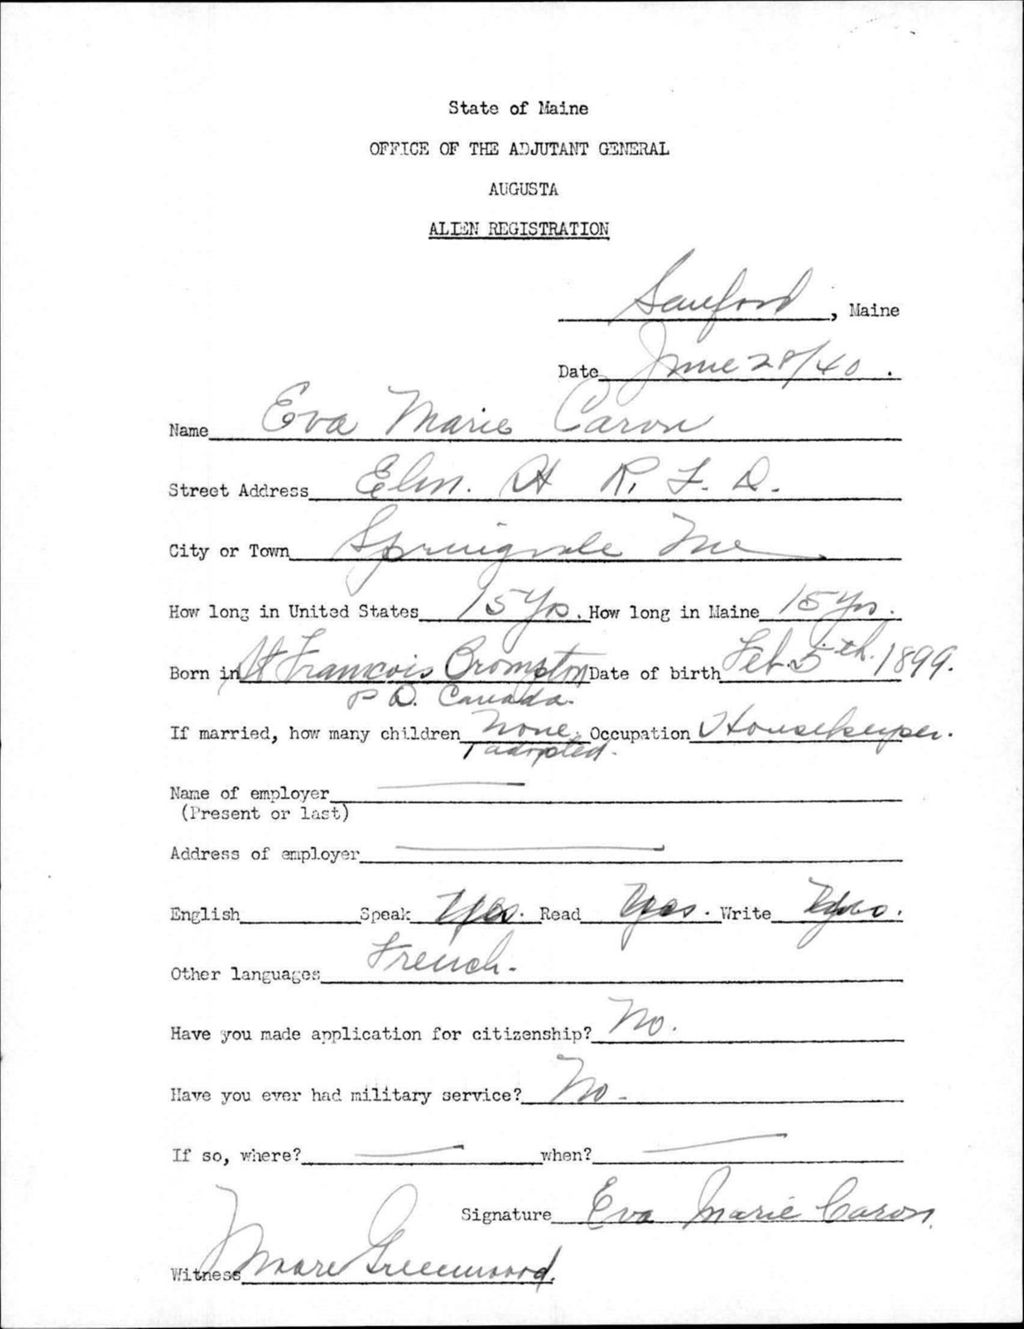 State of Maine
OFFICE OF THE ADJUTANT GENERAL
AUGUSTA
ALIEN REGISTRATION
Sanford, Maine
Date June 28/40.
Name Eva Marie Caron
Street Address Elm. St R. F. D.
City or Town Springvale Me
How long in United States 15 Yrs. How long in Maine 15 Yrs.
Born in St Francois Crompton Date of birth Feb. 5th. 1899.
P Q. Canada.
If married, how many children None. Occupation Housekeeper.
1 adopted.
Name of employer
(Present or last)
Address of employer
English Speak Yes. Read Yes. Write Yes.
Other languages French.
Have you made application for citizenship? No.
Have you ever had military service? No.
If so, where? when?
Signature Eva Marie Caron.
Witness Greenwood.